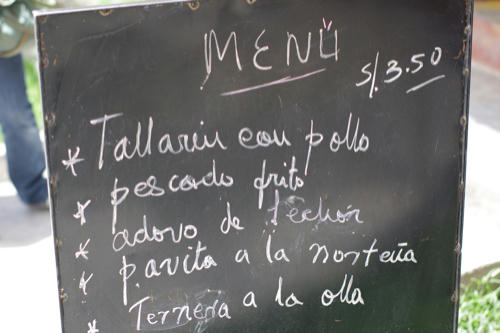 MENÚ
S/. 3.50
* Tallarin con pollo
* pescado frito
* adovo de lechón
* pavita a la norteña
* Ternera a la olla